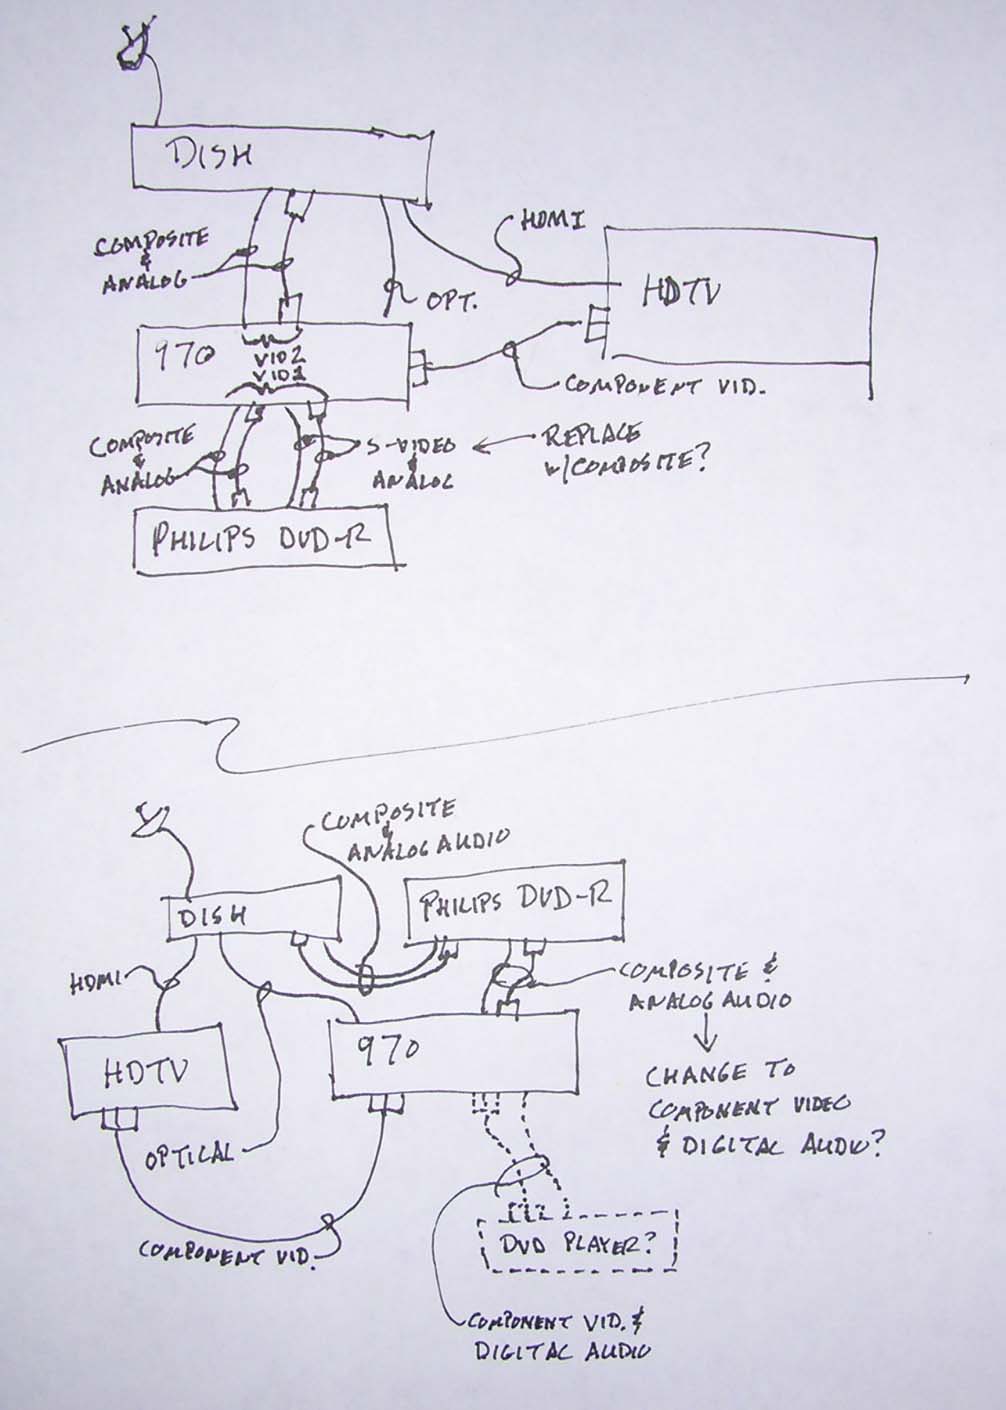 DISH
HDMI
COMPOSITE
&
ANALOG
OPT.
HDTV
970
VID2
VID1
COMPONENT VID.
COMPOSITE
&
ANALOG
S-VIDEO
&
ANALOG
REPLACE
W/COMPOSITE?
PHILIPS DVD-R
COMPOSITE
&
ANALOG AUDIO
DISH
PHILIPS DVD-R
HDMI
COMPOSITE &
ANALOG AUDIO
970
HDTV
CHANGE TO
COMPONENT VIDEO
& DIGITAL AUDIO?
OPTICAL
COMPONENT VID.
DVD PLAYER?
COMPONENT VID. &
DIGITAL AUDIO